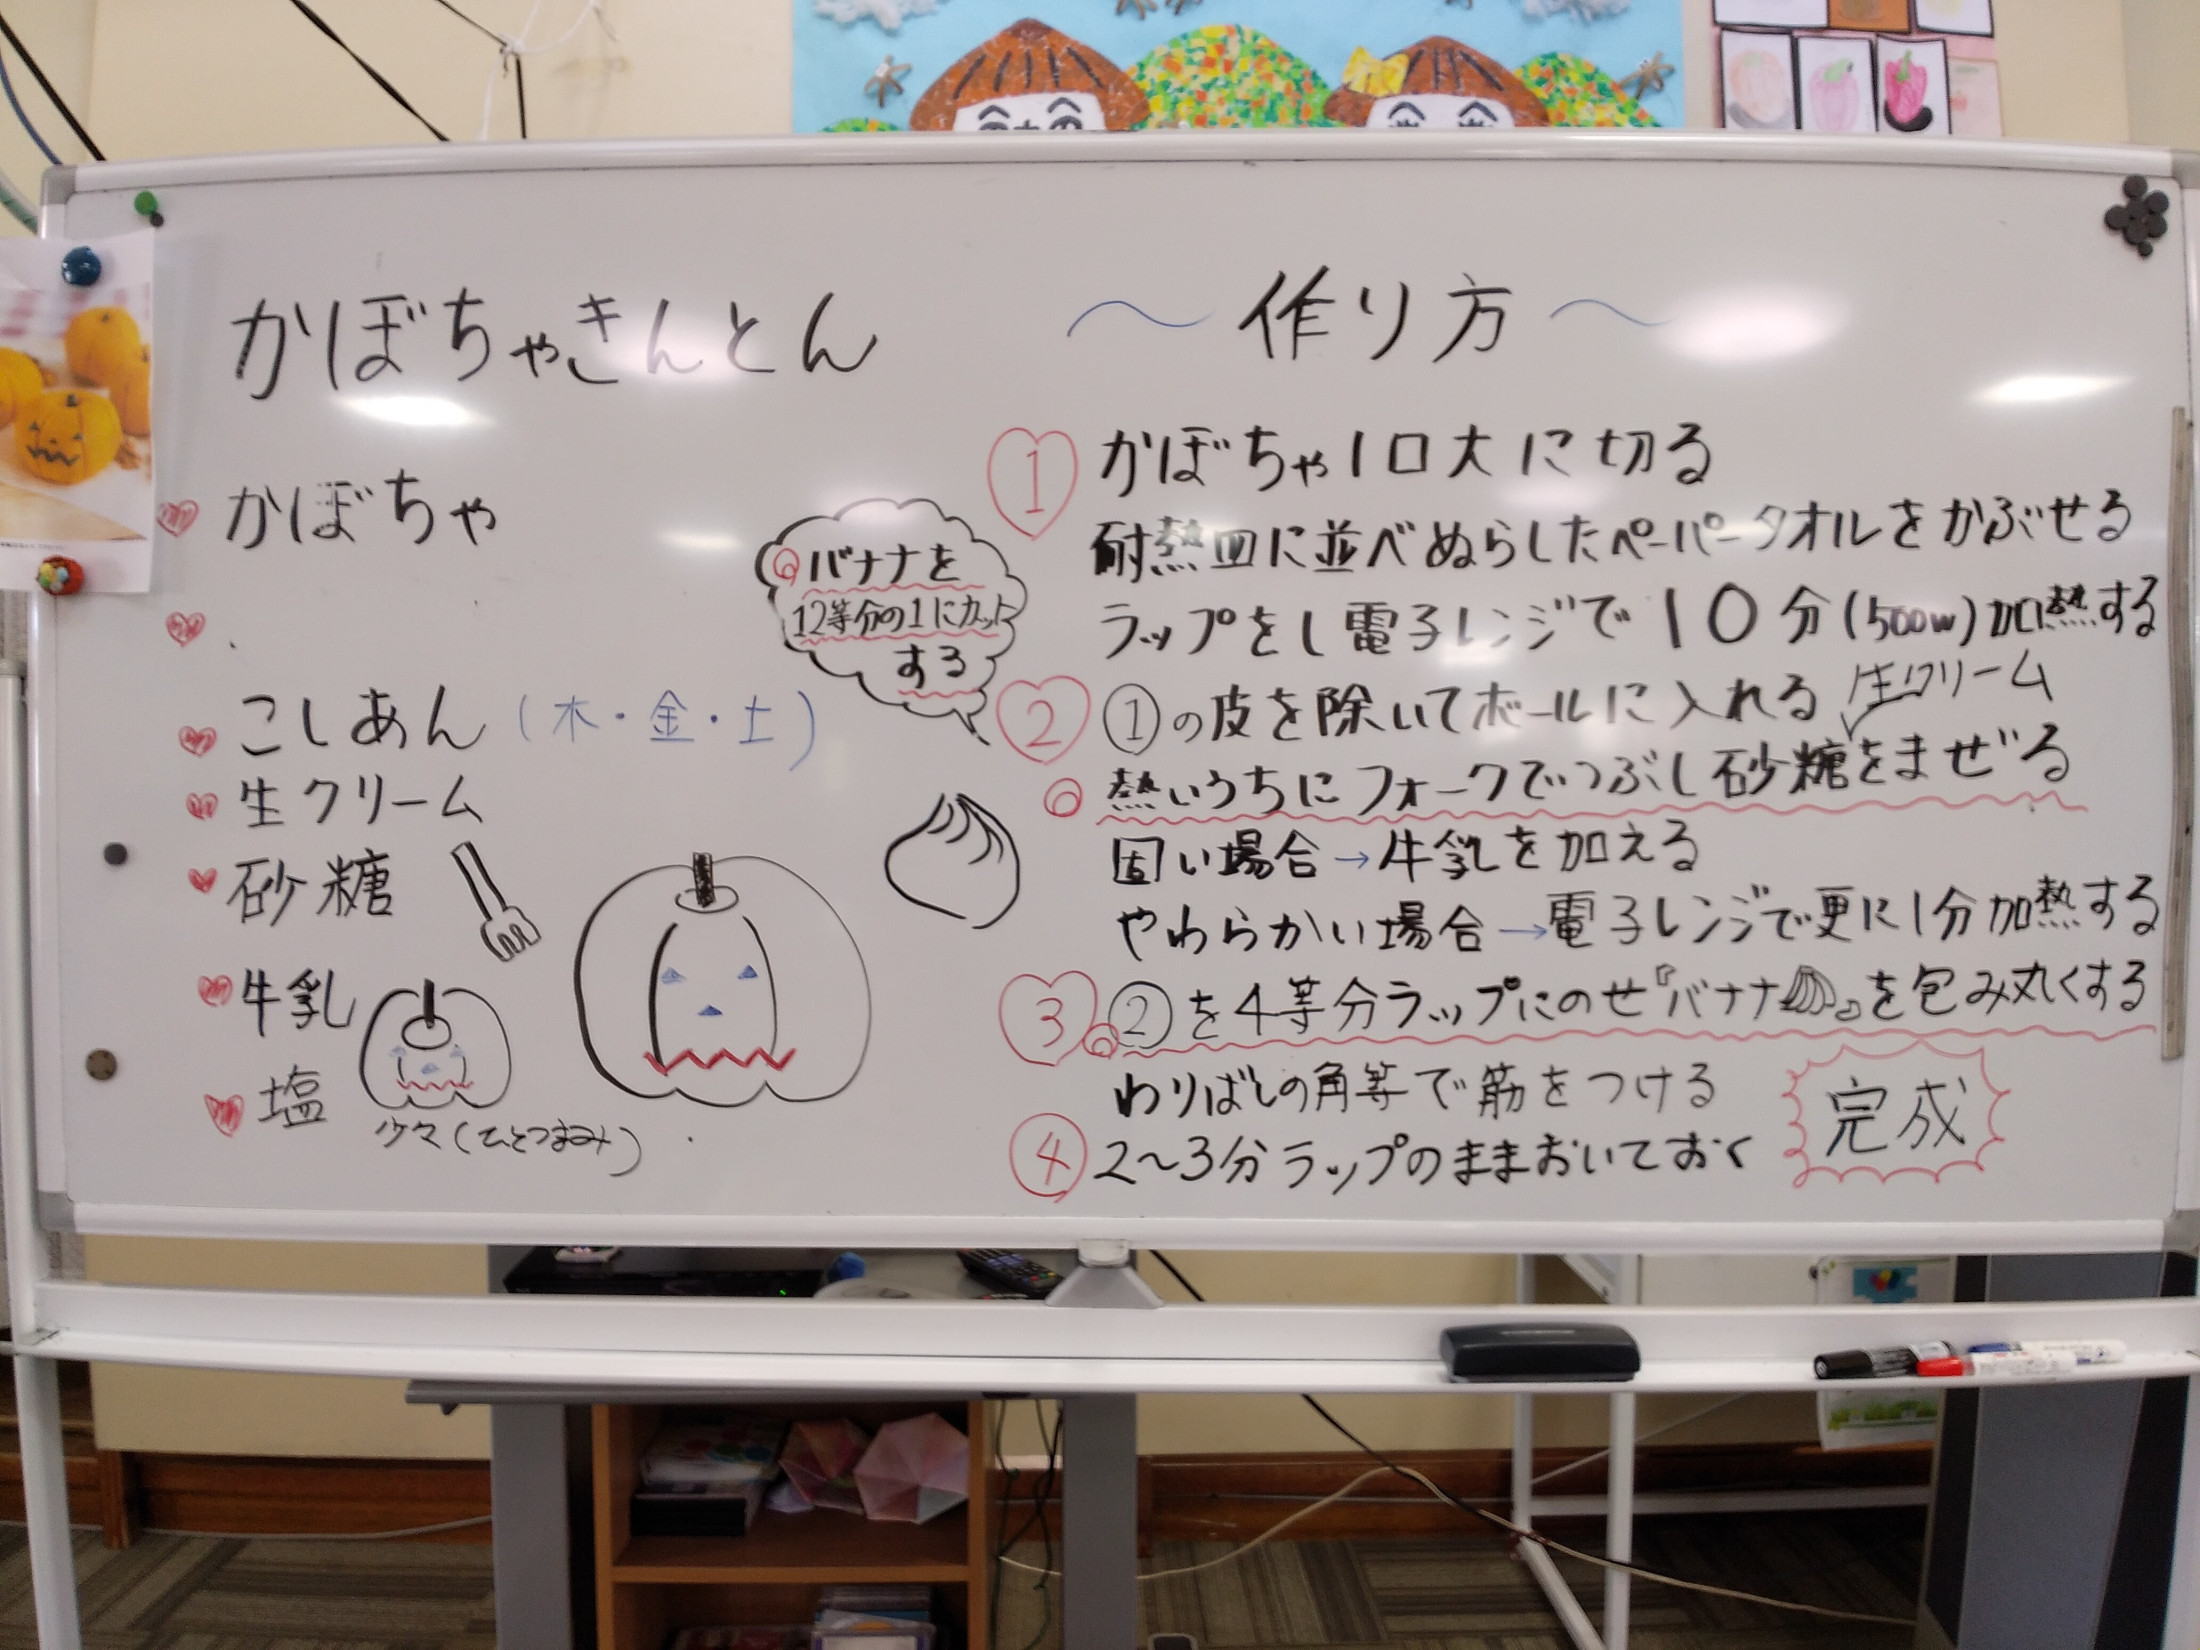 かぼちゃきんとん
かぼちゃ
こしあん (木・金・土)
生クリーム
砂糖
牛乳
塩
少々(ひとつまみ)
～作り方～
① かぼちゃ1口大に切る
耐熱皿に並べぬらしたペーパータオルをかぶせる
ラップをし電子レンジで10分(500w)加熱する
バナナを
12等分の1にカット
する
② ①の皮を除いてボールに入れる
生クリーム
熱いうちにフォークでつぶし砂糖をまぜる
固い場合→牛乳を加える
やわらかい場合→電子レンジで更に1分加熱する
③ ②を4等分ラップにのせ『バナナ』を包み丸くする
わりばしの角等で筋をつける
④ 2～3分ラップのままおいておく
完成